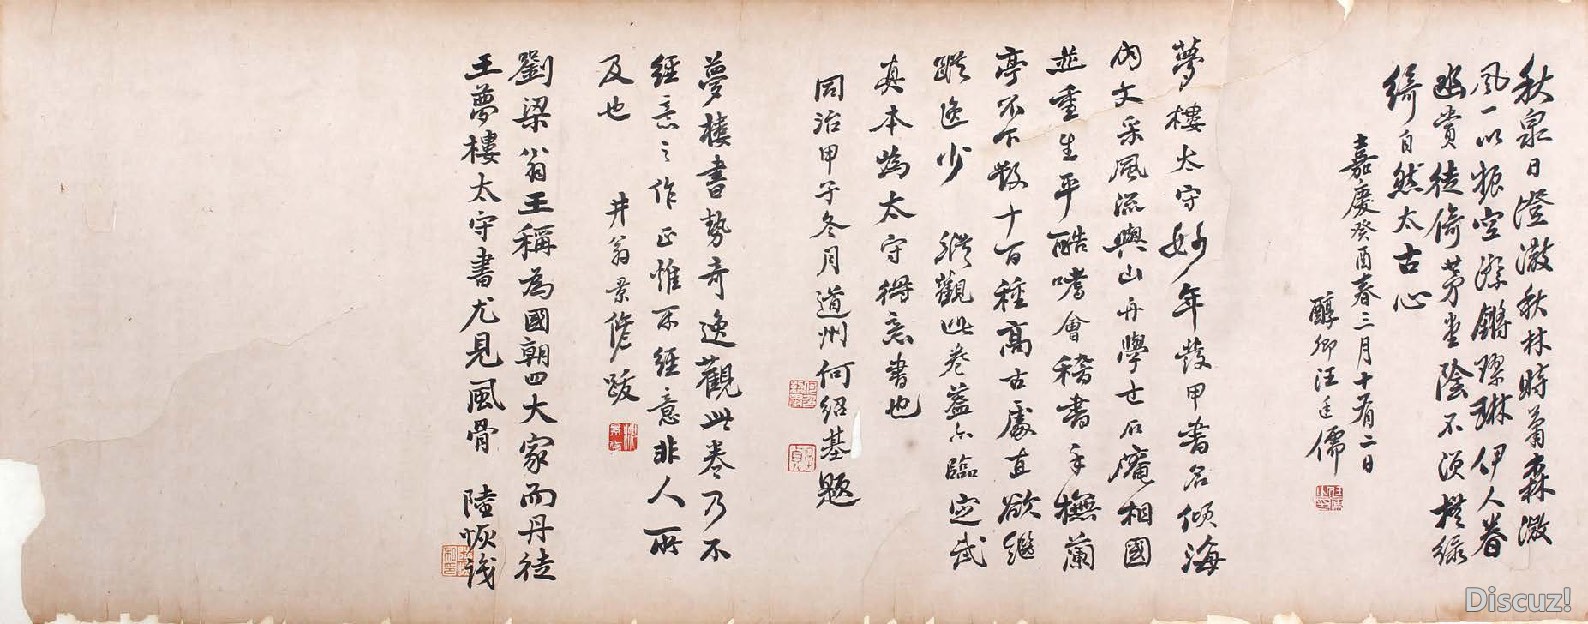 秋泉日澄澂秋林時蕭森澂
風一以振空潀鏘璨琳伊人眷
幽賞徒倚茅堂陰不須横綠
綺自然太古心
嘉慶癸酉春三月十有二日
醇卿汪廷儒
夢樓太守妙年發甲書名傾海
内文采風流與山舟學士石庵相國
並重生平酷嗜會稽書手橅蘭
亭不下數十百種高古處直欲繼
蹤逸少 縱觀此卷蓋亦臨定武
真本為太守得意書也
同治甲子冬月道州何紹基題
夢樓書勢奇逸觀此卷乃不
經意之作正惟不經意非人所
及也 井翁景俢跋
劉梁翁王稱為國朝四大家而丹徒
王夢樓太守書尤見風骨 陸恢識
Discuz!